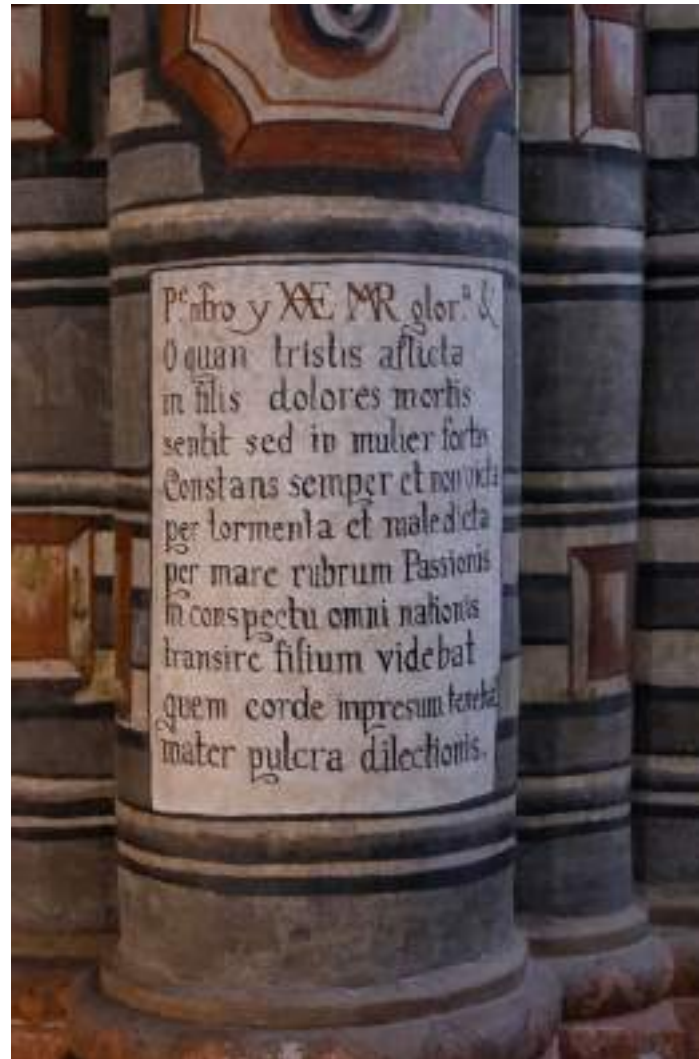 P.e nr̃o y AVE MAR glor.a &
O quan tristis aflicta
in filis dolores mortis
sentit sed in mulier fortis
Constans semper et non victa
per tormenta et maledicta
per mare rubrum Passionis
in conspectu omni nationis
transire filium videbat
quem corde inpresum tenebat
mater pulcra dilectionis.